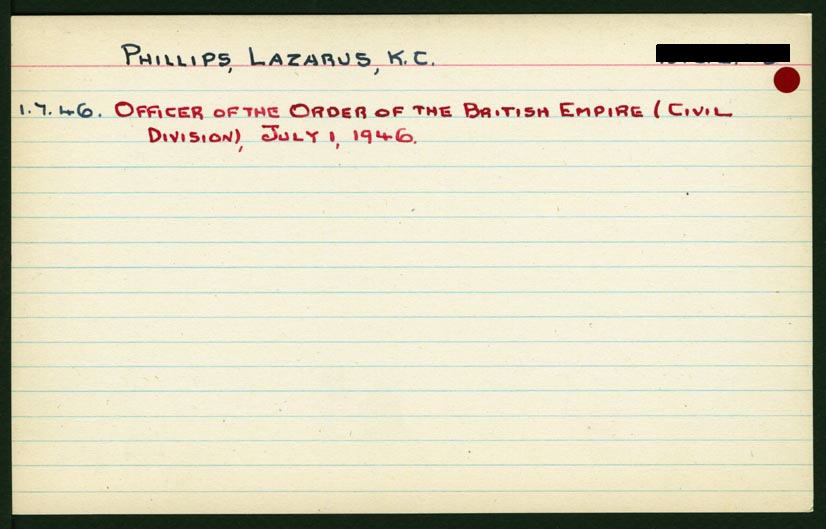 PHILLIPS, LAZARUS, K.C.
1.7.46. OFFICER OF THE ORDER OF THE BRITISH EMPIRE (CIVIL
DIVISION), JULY 1, 1946.